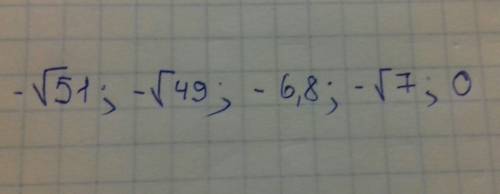 -√51; -√49; -6,8; -√7; 0